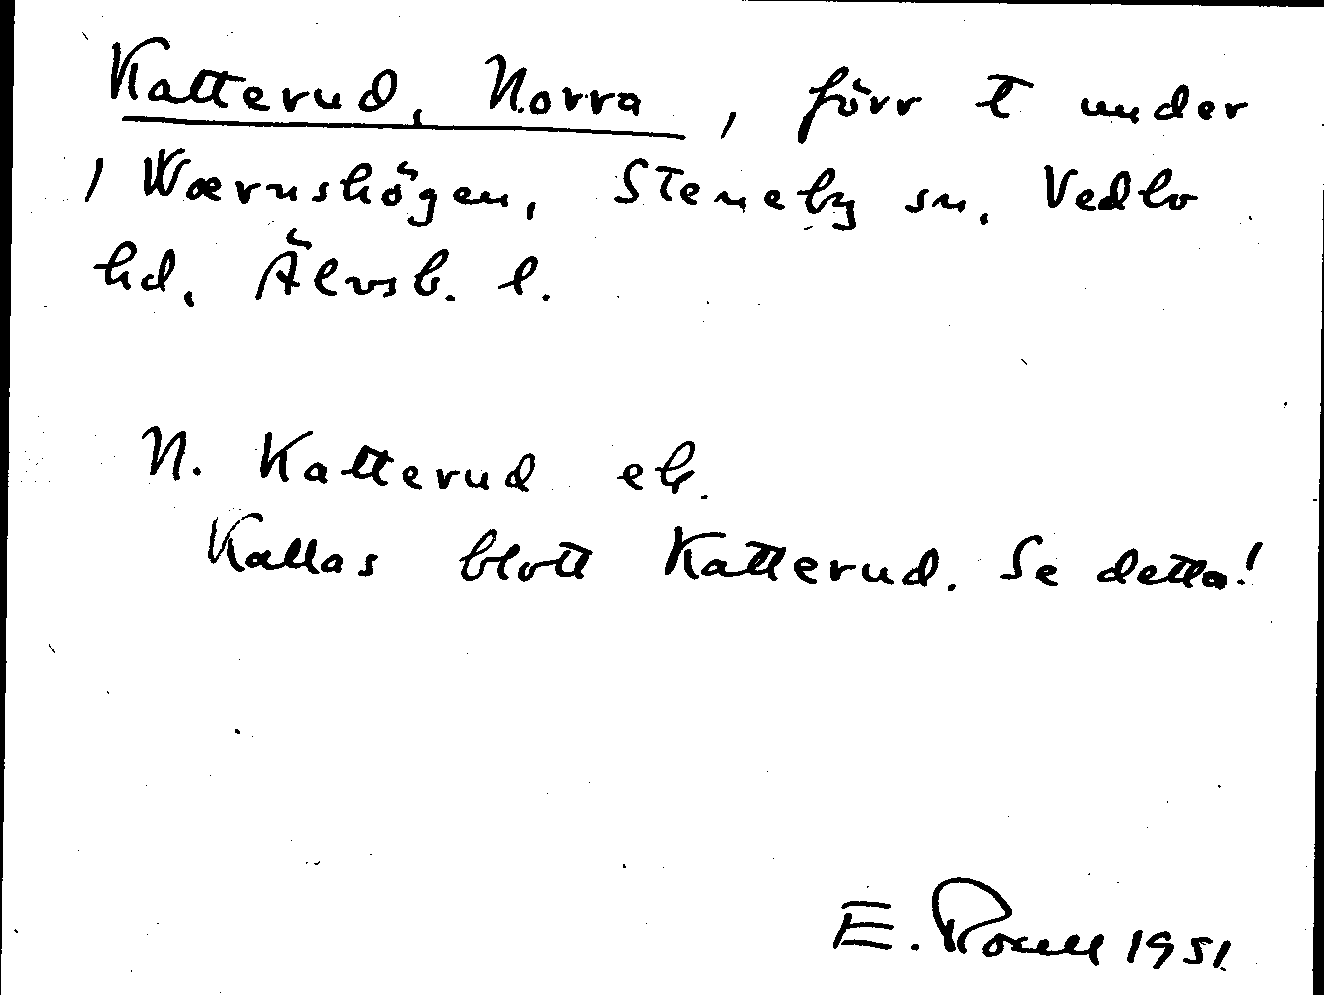 Katterud, Norra, förr t under
1 Wærnshögen, Steneby sn, Vedbo
hd, Älvsb. l.
N. Katterud eb.
Kallas blott Katterud. Se detta!
E. 1951